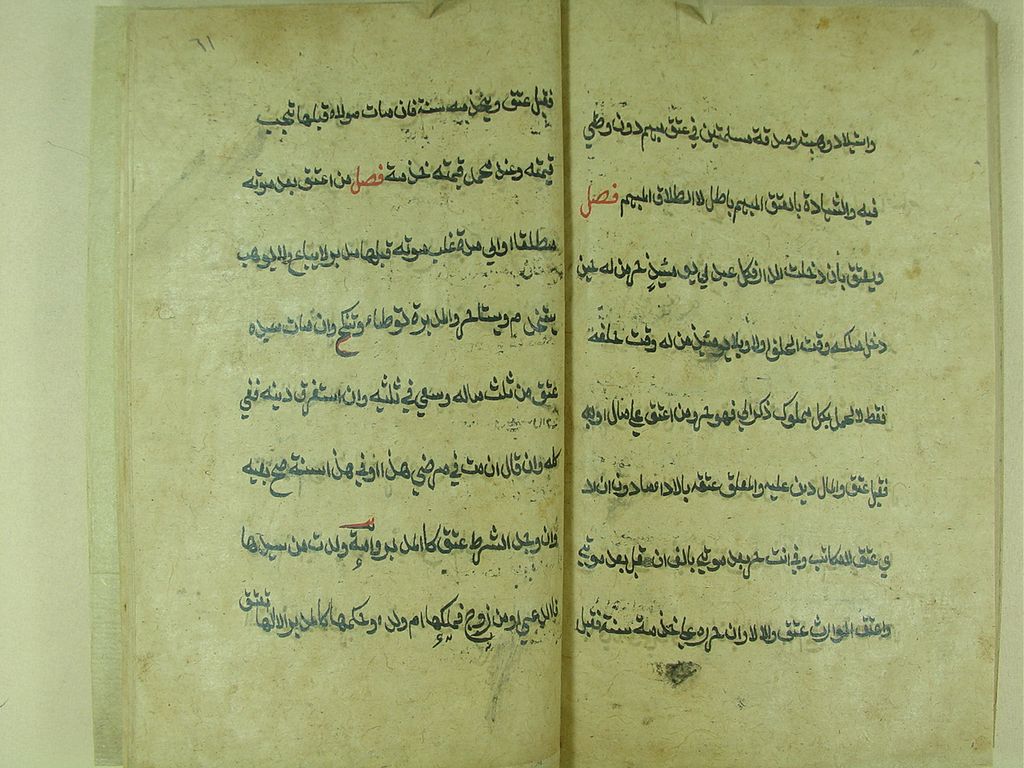 واستيلاد وهبته وصدقة مسلمتين في عتق مبهم دون وطئ
فيه والشهادة بالعتق المبهم باطل لا الطلاق المبهم فصل
ويعتق بأن دخلت الدار فكل عبد لي يومئيذٍ حر من له حين
دخل ملكه وقت الحلف اولا وبلا يومئيذ من له وقت حلفه
فقط لا الحمل بكل مملوك ذكر لي فهو حر ومن اعتق على مال او به
فقبل عتق والمال دين عليه والمعلق عتقه بالاداء ماذون ان اد
ي عتق لا مكاتب وفي انت حر بعد موتي بالف ان قبل بعد موتي
واعتقه الوارث عتق والا لا وان حرره على خدمة سنة فقبل
٦١
فقبل عتق ويخدمه سنة فان مات مولاه قبلها تجب
قيمته وعند محمد قيمته خدمة فصل من اعتق بعد موته
مطلقا او الي مدة غلب موته قبلها مدبر لا يباع ولا يوهب
يستخدم ويستاجر والمدبرة توطاء وتنكح وان مات سيده
عتق من ثلث ماله وسعي في ثلثيه وان استغرق دينه ففي
كله وان قال ان مت في مرضي هذا او في هذا السنة صح بيعه
وان وجد الشرط عتق كالمدبر وامة ولدت من سيدها
فادعي او من زوج فملكها ام ولد وحكمها كالمدبر الا انها تعتق